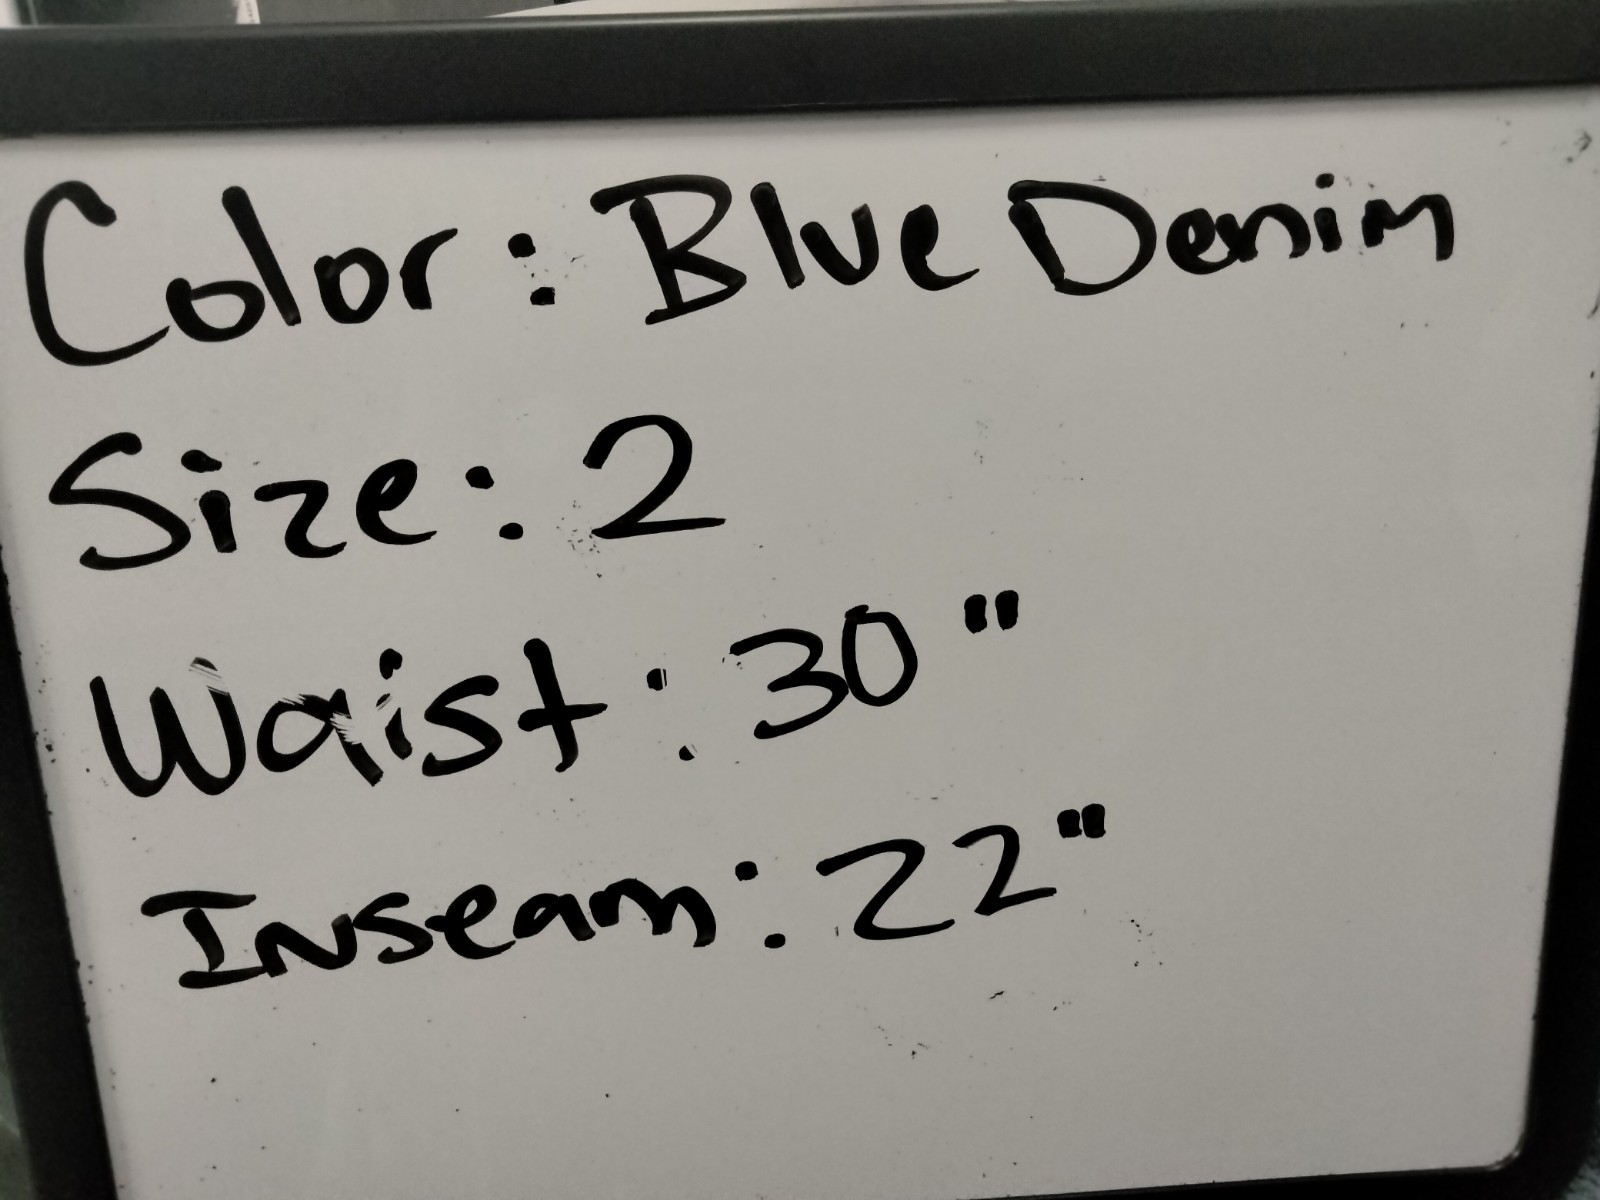 Color: Blue Denim
Size: 2
Waist: 30"
Inseam: 22"